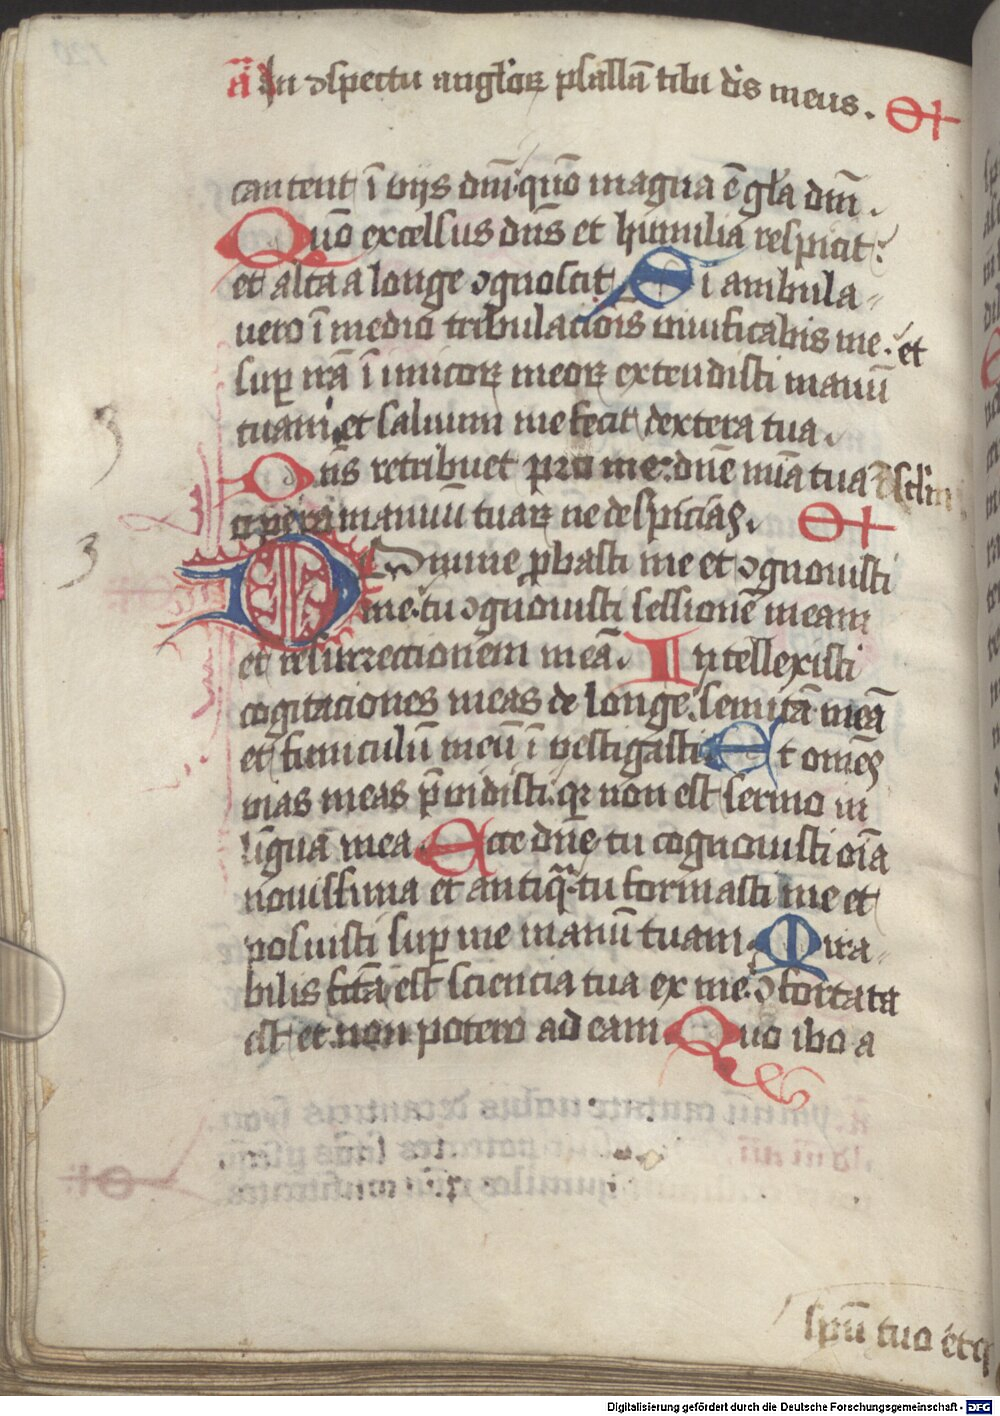 a̅ In ɔspectu angl̓oꝝ psalla̅ tibi d̅s meus.
cantent i̅ vijs dn̅i quo̅ magna e̅ gl̓a dn̅i.
Quo̅ excelsus dn̅s et humilia respicit:
et alta a longe ɔgnoscit Si ambula
vero i̅ medio tribulacio̅is viuificabis me: et
suꝑ ira̅ i̅imicoꝝ meoꝝ extendisti manu̅
tuam et saluum me fecit dextera tua.
Dn̅s retribuet pro me: dn̅e mi̅a tua i̅ sc̅lm
opera manuu̅ tuaꝝ ne despicias.
Domine ꝓbasti me et ɔgnouisti
me: tu ɔgnouisti sessione̅ meam
et resurrectionem mea̅. Intellexisti
cogitaciones meas de longe: semita̅ mea̅
et funiculu̅ meu̅ i̅vestigasti Et om̅es
vias meas p̅uidisti: qꝛ non est sermo in
li̅gua̅ mea Ecce dn̅e tu cognouisti oi̅a
nouissima et antiq̅: tu formasti me et
posuisti suꝑ me manu̅ tuam Mira
bilis fc̅ta est sciencia tua ex me: ɔfortata
est et non potero ad eam Quo ibo a
spu̅ tuo et q
Digitalisierung gefördert durch die Deutsche Forschungsgemeinschaft - DFG